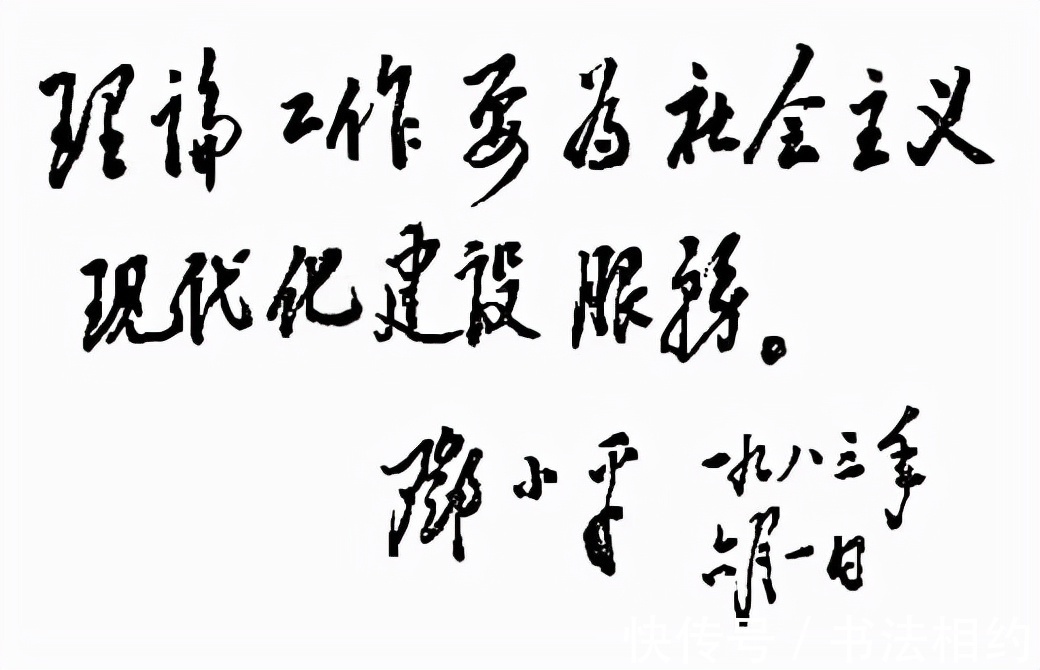 理論工作要为社会主义
现代化建設服務。
鄧小平 一九八三年
六月一日
快传号 / 书法相约